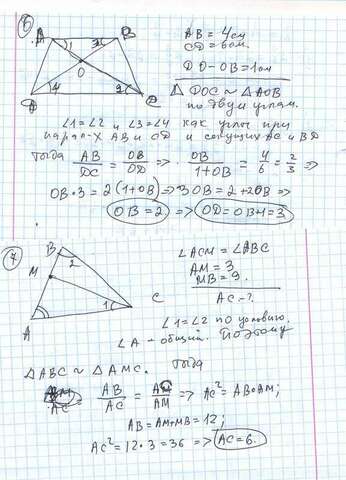 6
A B
1 3
O
4 2
D C
AB = 4см
CD = 6см.
DO - OB = 1см
△ DOC ~ △ AOB
по двум углам.
∠1 = ∠2 и ∠3 = ∠4 как углы при
парал-х AB и CD и секущих AC и BD
тогда AB/DC = OB/OD => OB/(1+OB) = 4/6 = 2/3 =>
OB·3 = 2(1+OB) => 3OB = 2 + 2OB =>
OB = 2 => OD = OB+1 = 3
7
B
2
M
1 C
A
∠ACM = ∠ABC
AM = 3
MB = 9.
AC - ?
∠1 = ∠2 по условию.
∠A - общий. Поэтому
△ABC ~ △AMC. Тогда
AB/AC = AC/AM => AC² = AB·AM;
AB = AM + MB = 12;
AC² = 12·3 = 36 => AC = 6.